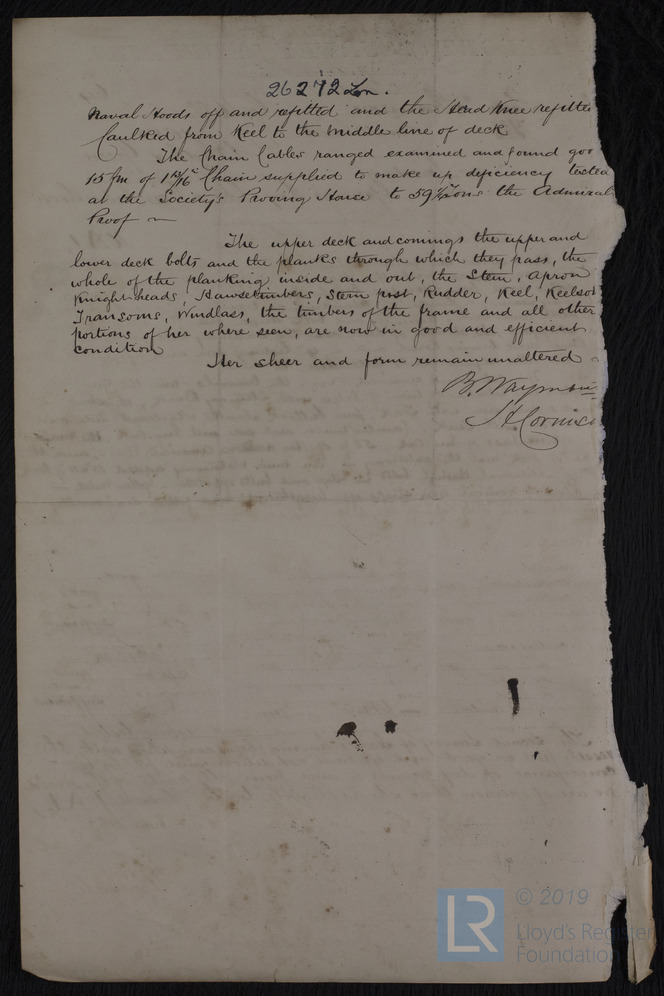 26272 Lon.
Naval Hoods off and refitted and the Head Knee refitte
Caulked from Keel to the middle line of deck
The Chain Cables ranged examined and found goo
15 fm of 1 13/16 Chain supplied to make up deficiency tested
at the Society's Proving House to 59 Tons the Admiral
Proof
The upper deck and comings the upper and
lower deck bolts and the planks through which they pass, the
whole of the planking inside and out, the Stem, apron
Knightheads, Hawsetimbers, Stern post, Rudder, Keel, Keelson
Transoms, Windlass, the timbers of the frame and all other
portions of her where seen, are now in good and efficient
condition
Her sheer and form remain unaltered
B. Waymou
H. Cornis
LR
© 2019
Lloyd's Register
Foundation